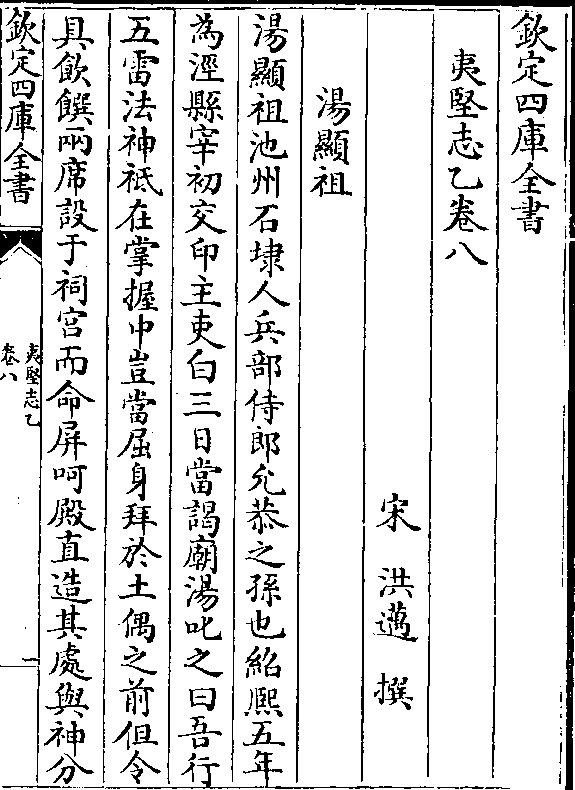 欽定四庫全書
夷堅志乙卷八
宋 洪邁 撰
湯顯祖
湯顯祖池州石埭人兵部侍郎允恭之孫也紹熈五年
為涇縣宰初交印主吏白三日當謁廟湯叱之曰吾行
五雷法神祇在掌握中豈當屈身拜於土偶之前但令
具飲饌兩席設于祠宫而命屏呵殿直造其處與神分
欽定四庫全書
夷堅志乙
卷八
一